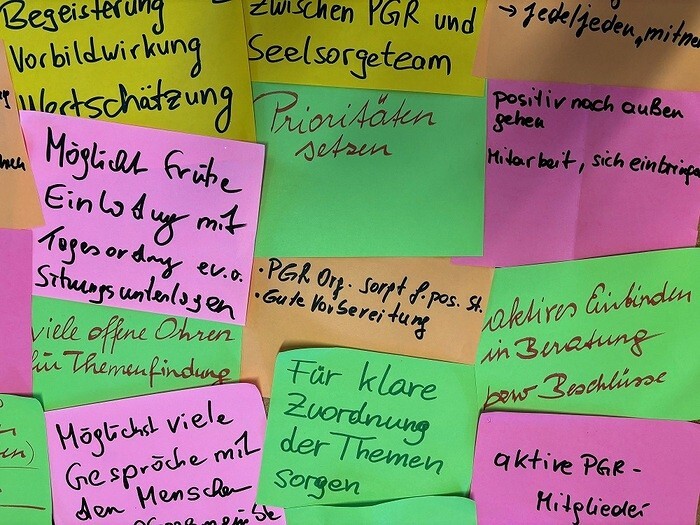 Begeisterung
Vorbildwirkung
Wertschätzung
zwischen PGR und
Seelsorgeteam
→ jede/jeden „mitne
Prioritäten
setzen
positiv nach außen
gehen
Mitarbeit, sich einbringen
Möglichst frühe
Einladung mit
Tagesordnung ev. o.
Sitzungsunterlagen
• PGR Org. sorgt f. pos. St.
• Gute Vorbereitung
viele offene Ohren
für Themenfindung
aktives Einbinden
in Beratung
bzw Beschlüsse
Für klare
Zuordnung
der Themen
sorgen
Möglichst viele
Gespräche mit
den Menschen
aktive PGR-
Mitglieder